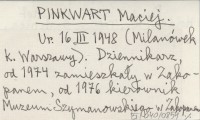 PINKWART Maciej.
Ur. 16 III 1948 (Milanówek
k. Warszawy). Dziennikarz,
od 1974 zamieszkały w Zako-
panem, od 1976 kierownik
Muzeum Szymanowskiego w Zakopanem